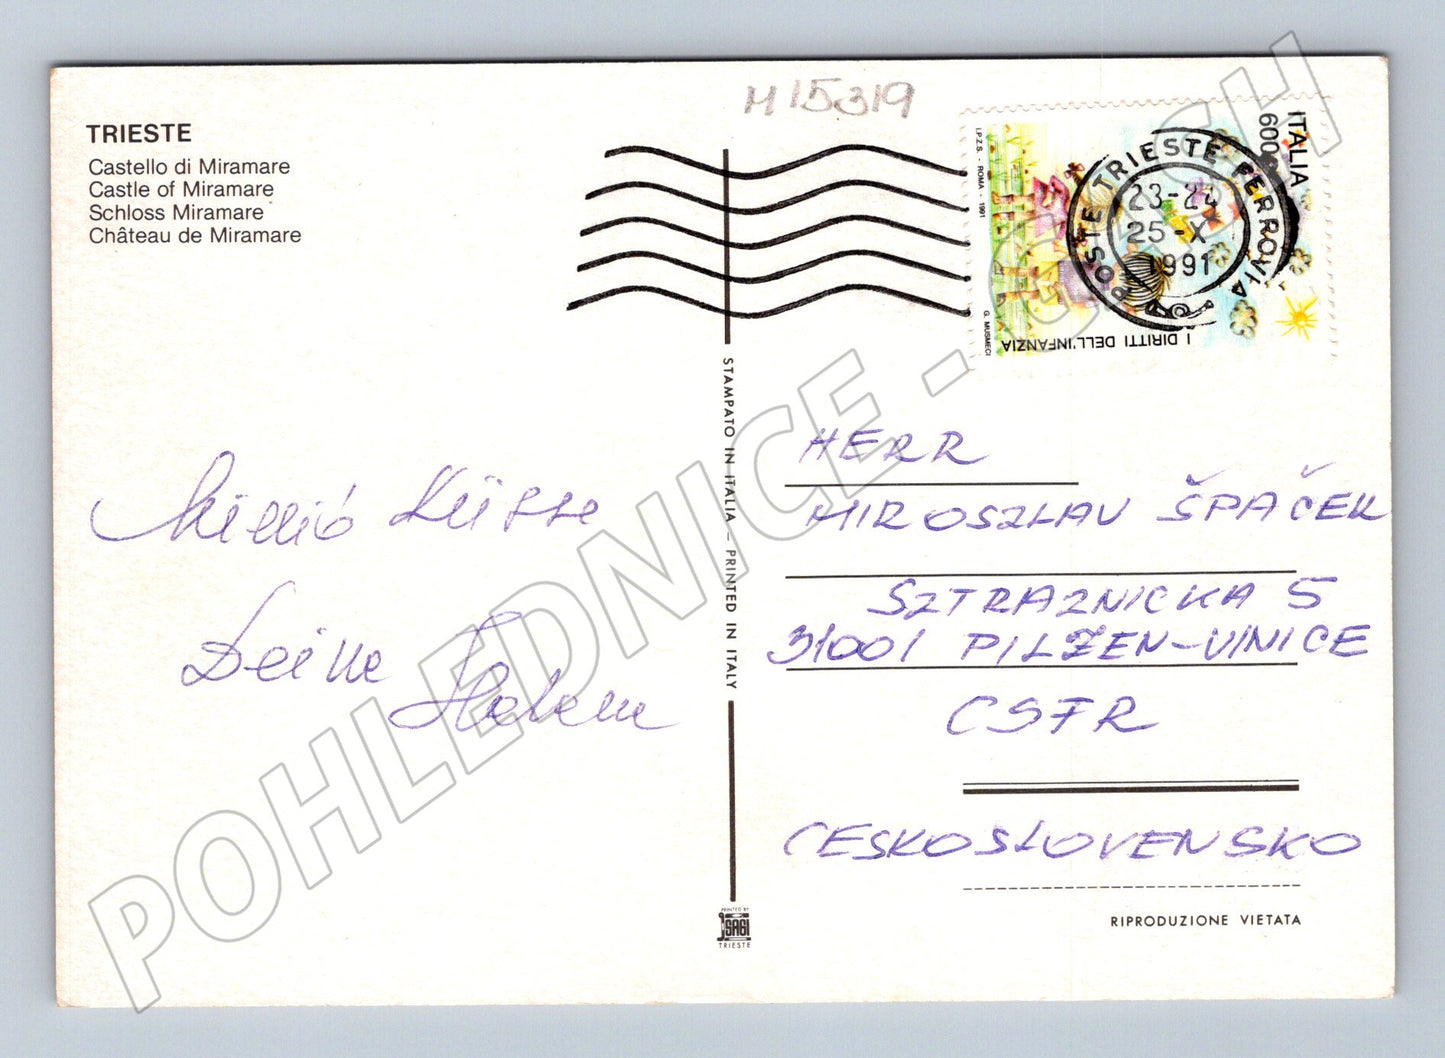 M15319
TRIESTE
Castello di Miramare
Castle of Miramare
Schloss Miramare
Château de Miramare
ITALIA
600
I.P.Z.S. - ROMA - 1991
G. MUSMECI
I DIRITTI DELL'INFANZIA
POSTE TRIESTE FERROVIA
23-24
25-X
1991
Millió Küsse
Deine Helene
STAMPATO IN ITALIA – PRINTED IN ITALY
HERR
MIROSZLAV ŠPAČEK
SZTRAZNICKA 5
31001 PILZEN-VINICE
CSFR
CESKOSLOVENSKO
PRINTED BY
SAGI
TRIESTE
RIPRODUZIONE VIETATA
POHLEDNICE - CASH